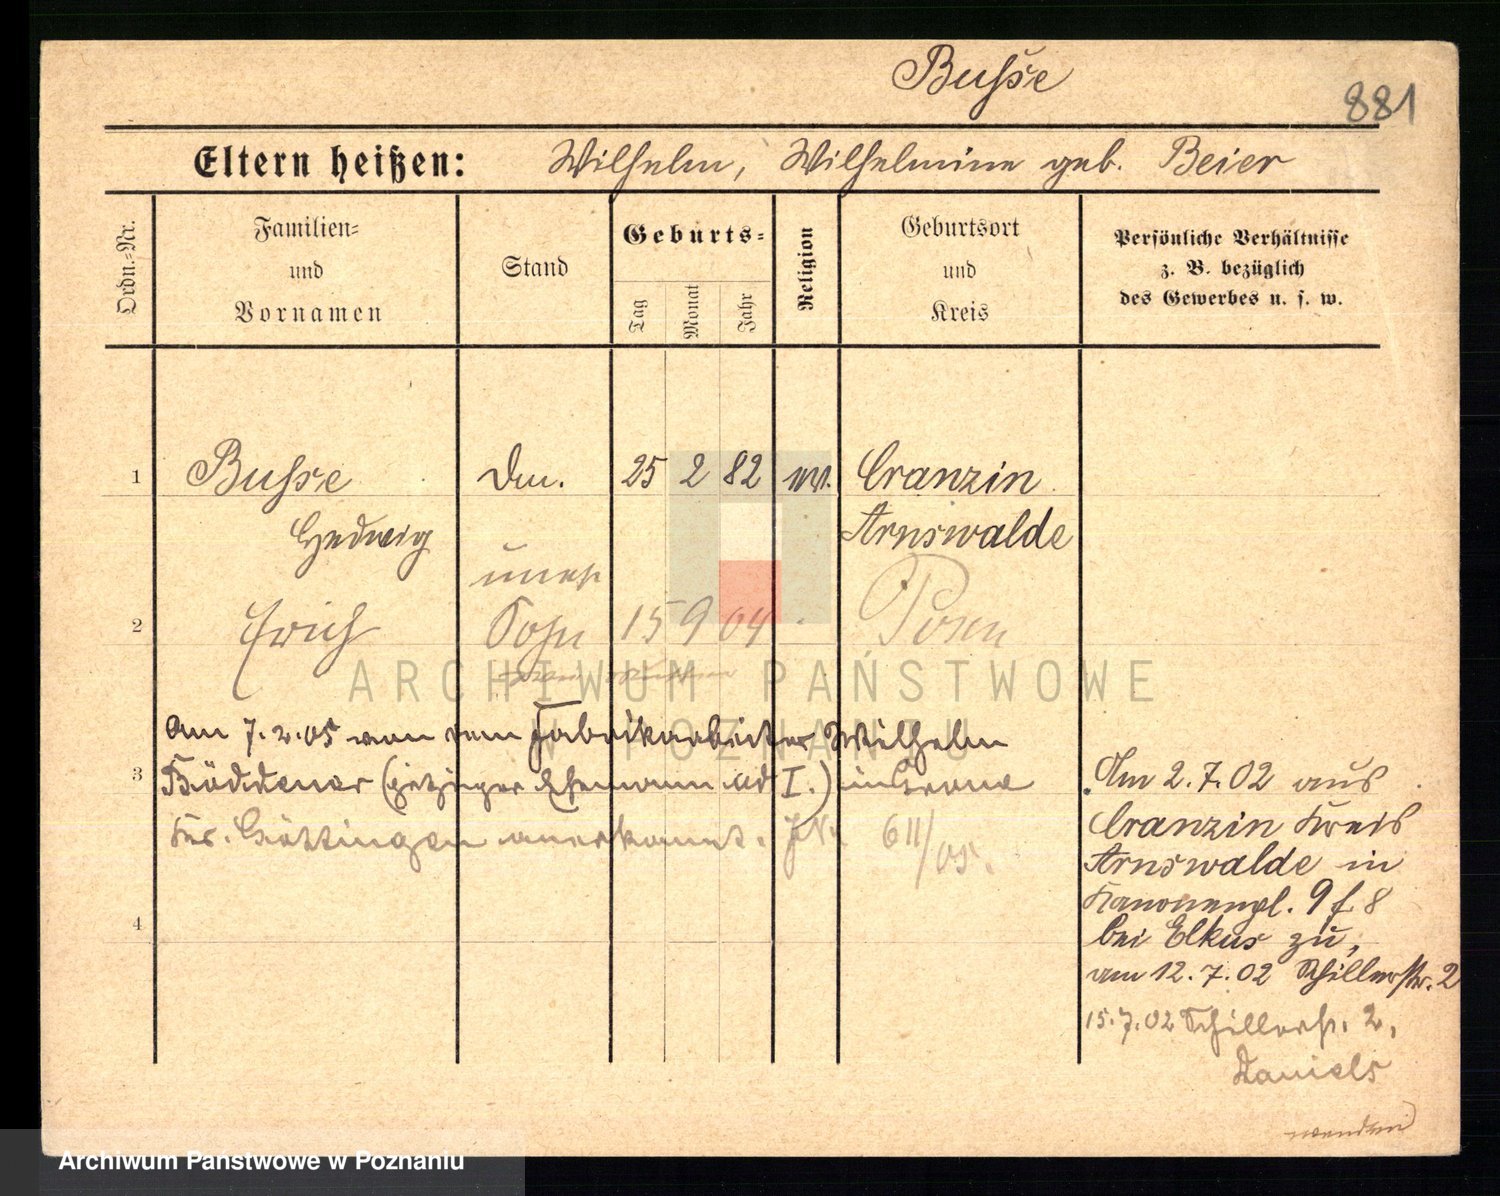 Busse
881
Eltern heißen: Wilhelm, Wilhelmine geb. Beier
Ordn.-Nr.
Familien-
und
Vornamen
Stand
Geburts-
Tag
Monat
Jahr
Religion
Geburtsort
und
Kreis
Persönliche Verhältnisse
z. B. bezüglich
des Gewerbes u. s. w.
1 Busse 25 2 82 ev. Cranzin
Hedwig Arnswalde
uneh
2 Erich Sohn 15 9 04 Posen
ARCHIWUM PAŃSTWOWE
W POZNANIU
Am 7.2.05 von dem Fabrikarbeiter Wilhelm
3 (jetziger Ehemann ad I.)
Kr. Göttingen anerkannt. 611/05.
4
Am 2.7.02 aus
Cranzin Kreis
Arnswalde in
Kanonenpl. 9
bei Elkus zu,
am 12.7.02 Schillerstr. 2
15.7.02 Schillerstr. 2,
Daniels
wenden
Archiwum Państwowe w Poznaniu